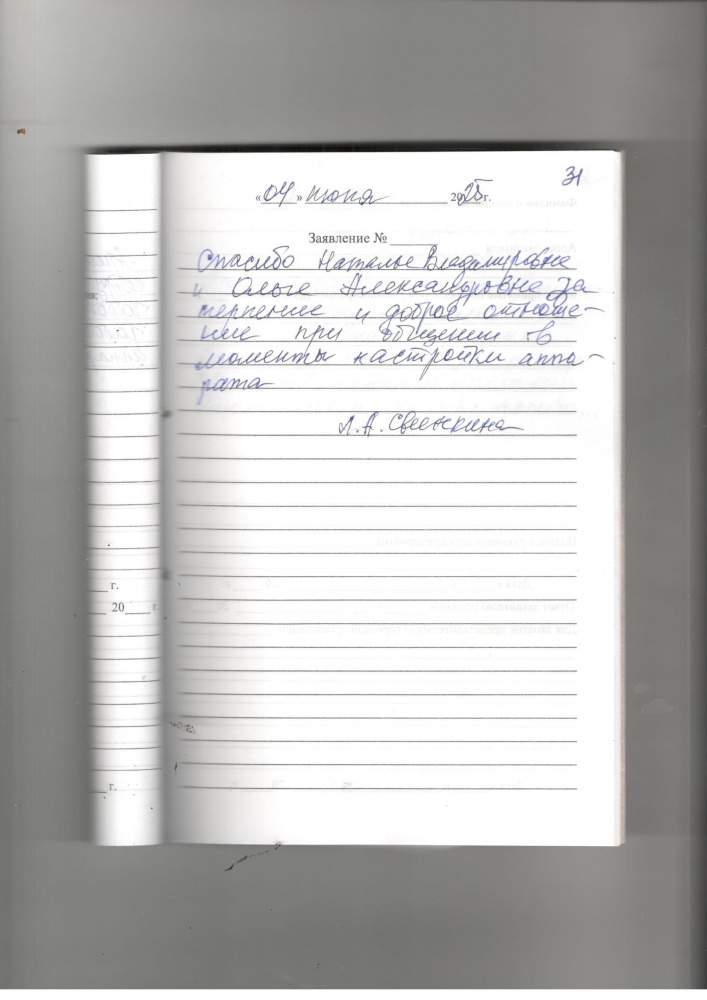 31
«04» июня 2025г.
Заявление №
Спасибо Наталье Владимировне
и Ольге Александровне за
терпение и доброе отноше-
ние при общении в
моменты настройки аппа-
рата
Л.А.
г.
20 г
г.